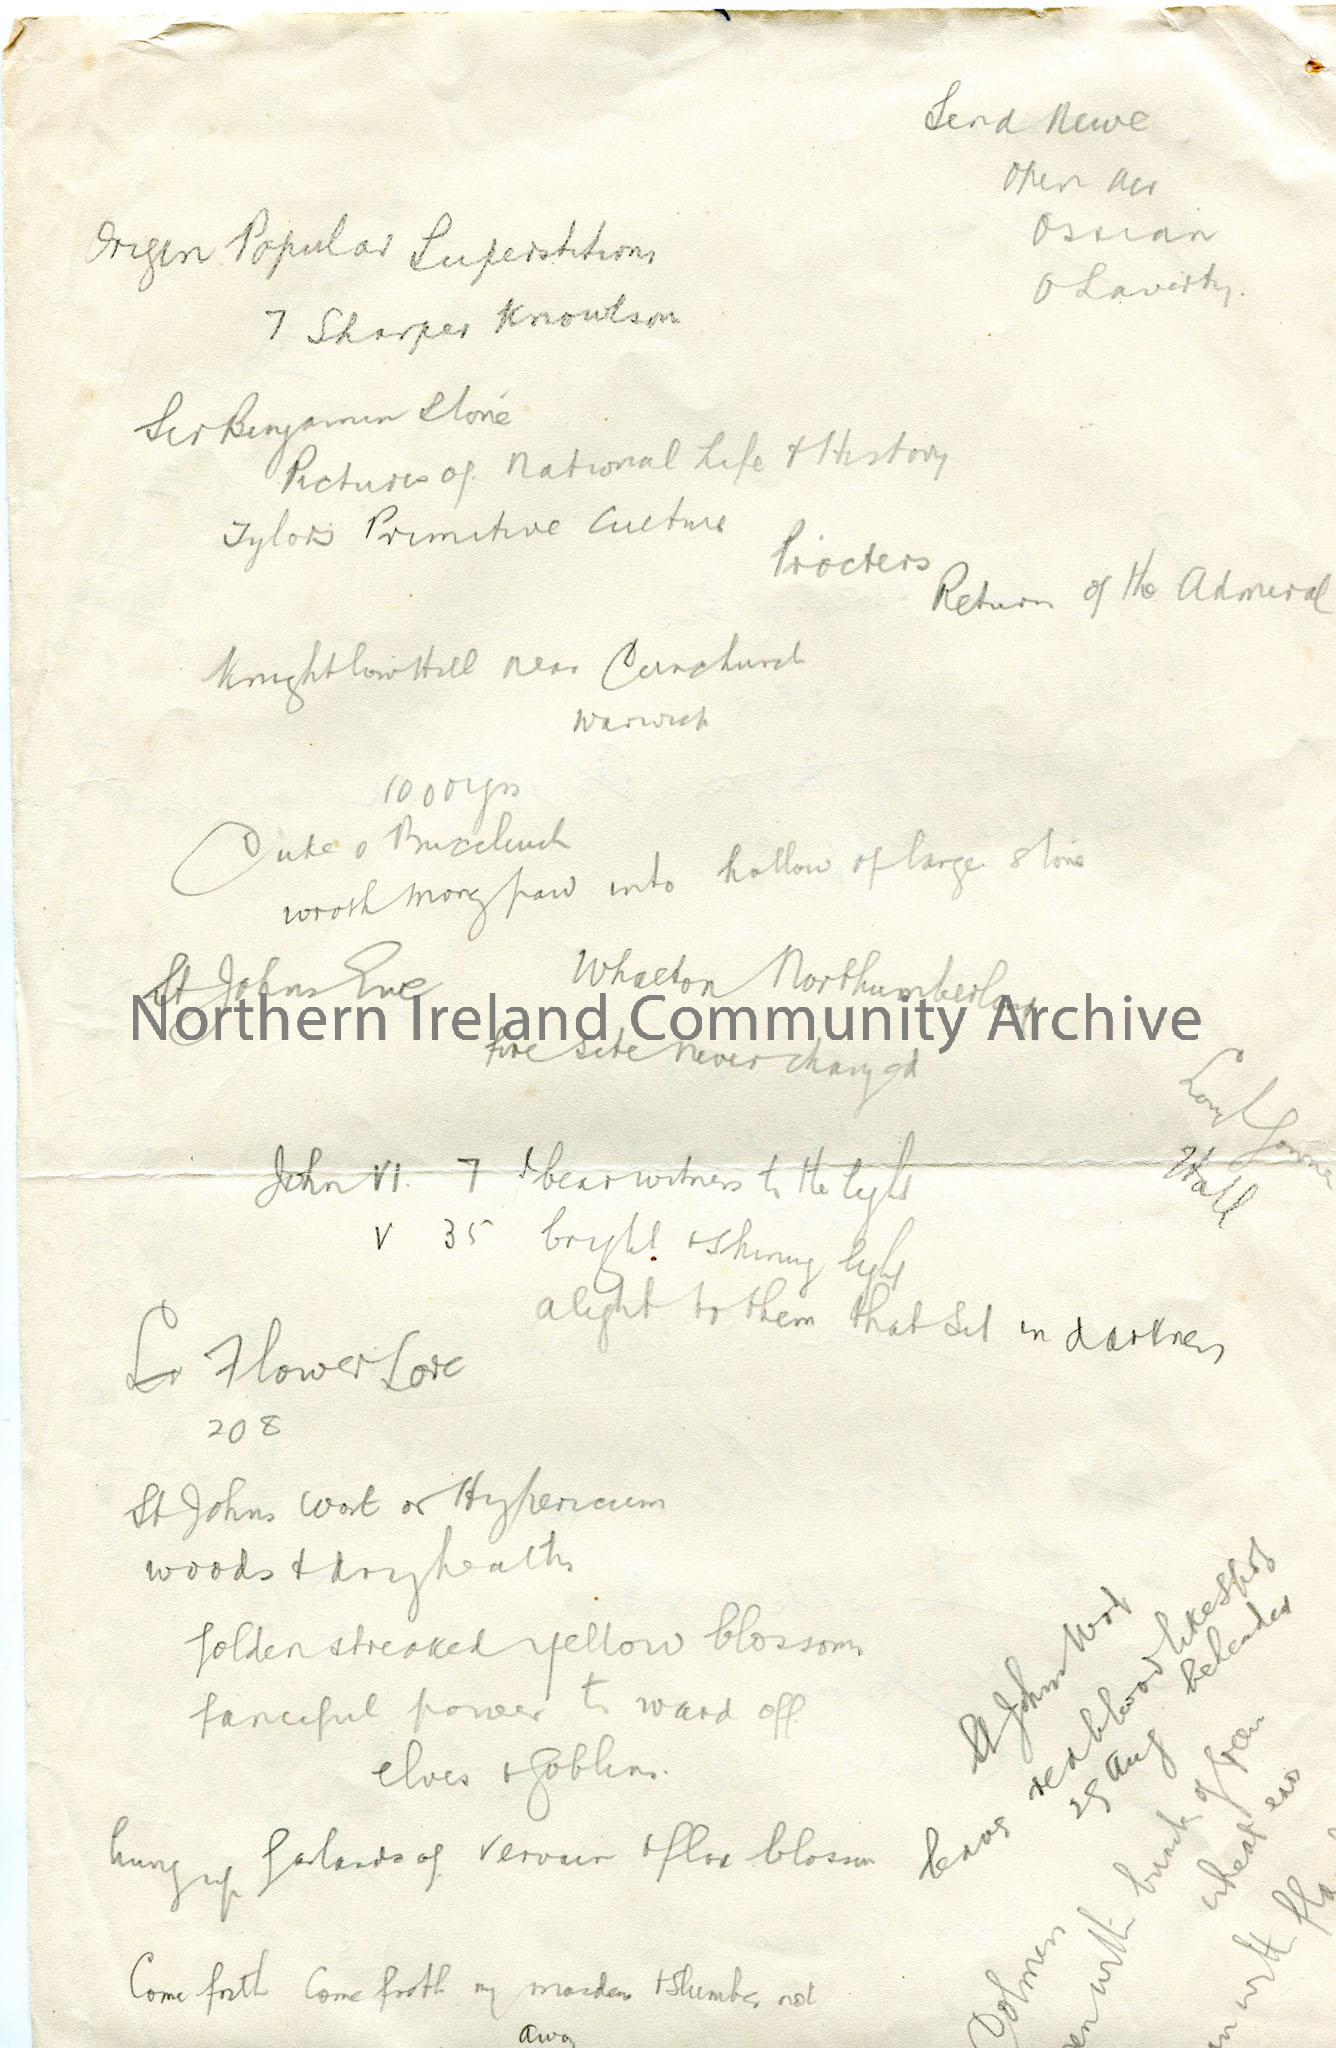 Send Newe
Open Air
Ossian
O Laverty.
Origin Popular Superstitions
T Sharper Knowlson
Sir Benjamin Stone
Pictures of National Life & History
Tylors Primitive Culture
Procters
Return of the Admiral
Knightlow Hill near Dunchurch
Warwick
1000 yrs
Duke o Buccleuch
wroth money paid into hollow of large stone
St Johns Eve Whalton Northumberland
Northern Ireland Community Archive
fire site never changed
Hall
John VI. 7 & bear witness to the light
V 35 bright & shining light
a light to them that sit in darkness
Flower Lore
208
St Johns wort or Hypericum
woods & dry heaths
golden streaked yellow blossoms
fanciful power to ward off
elves & goblins.
hung up garlands of vervain & flax blossom
Come forth Come forth my maidens & slumber not
away
St Johns Wort
bears red blood like spots
29 Aug beheaded
Dolmens
with bunch of
wheat ears
with